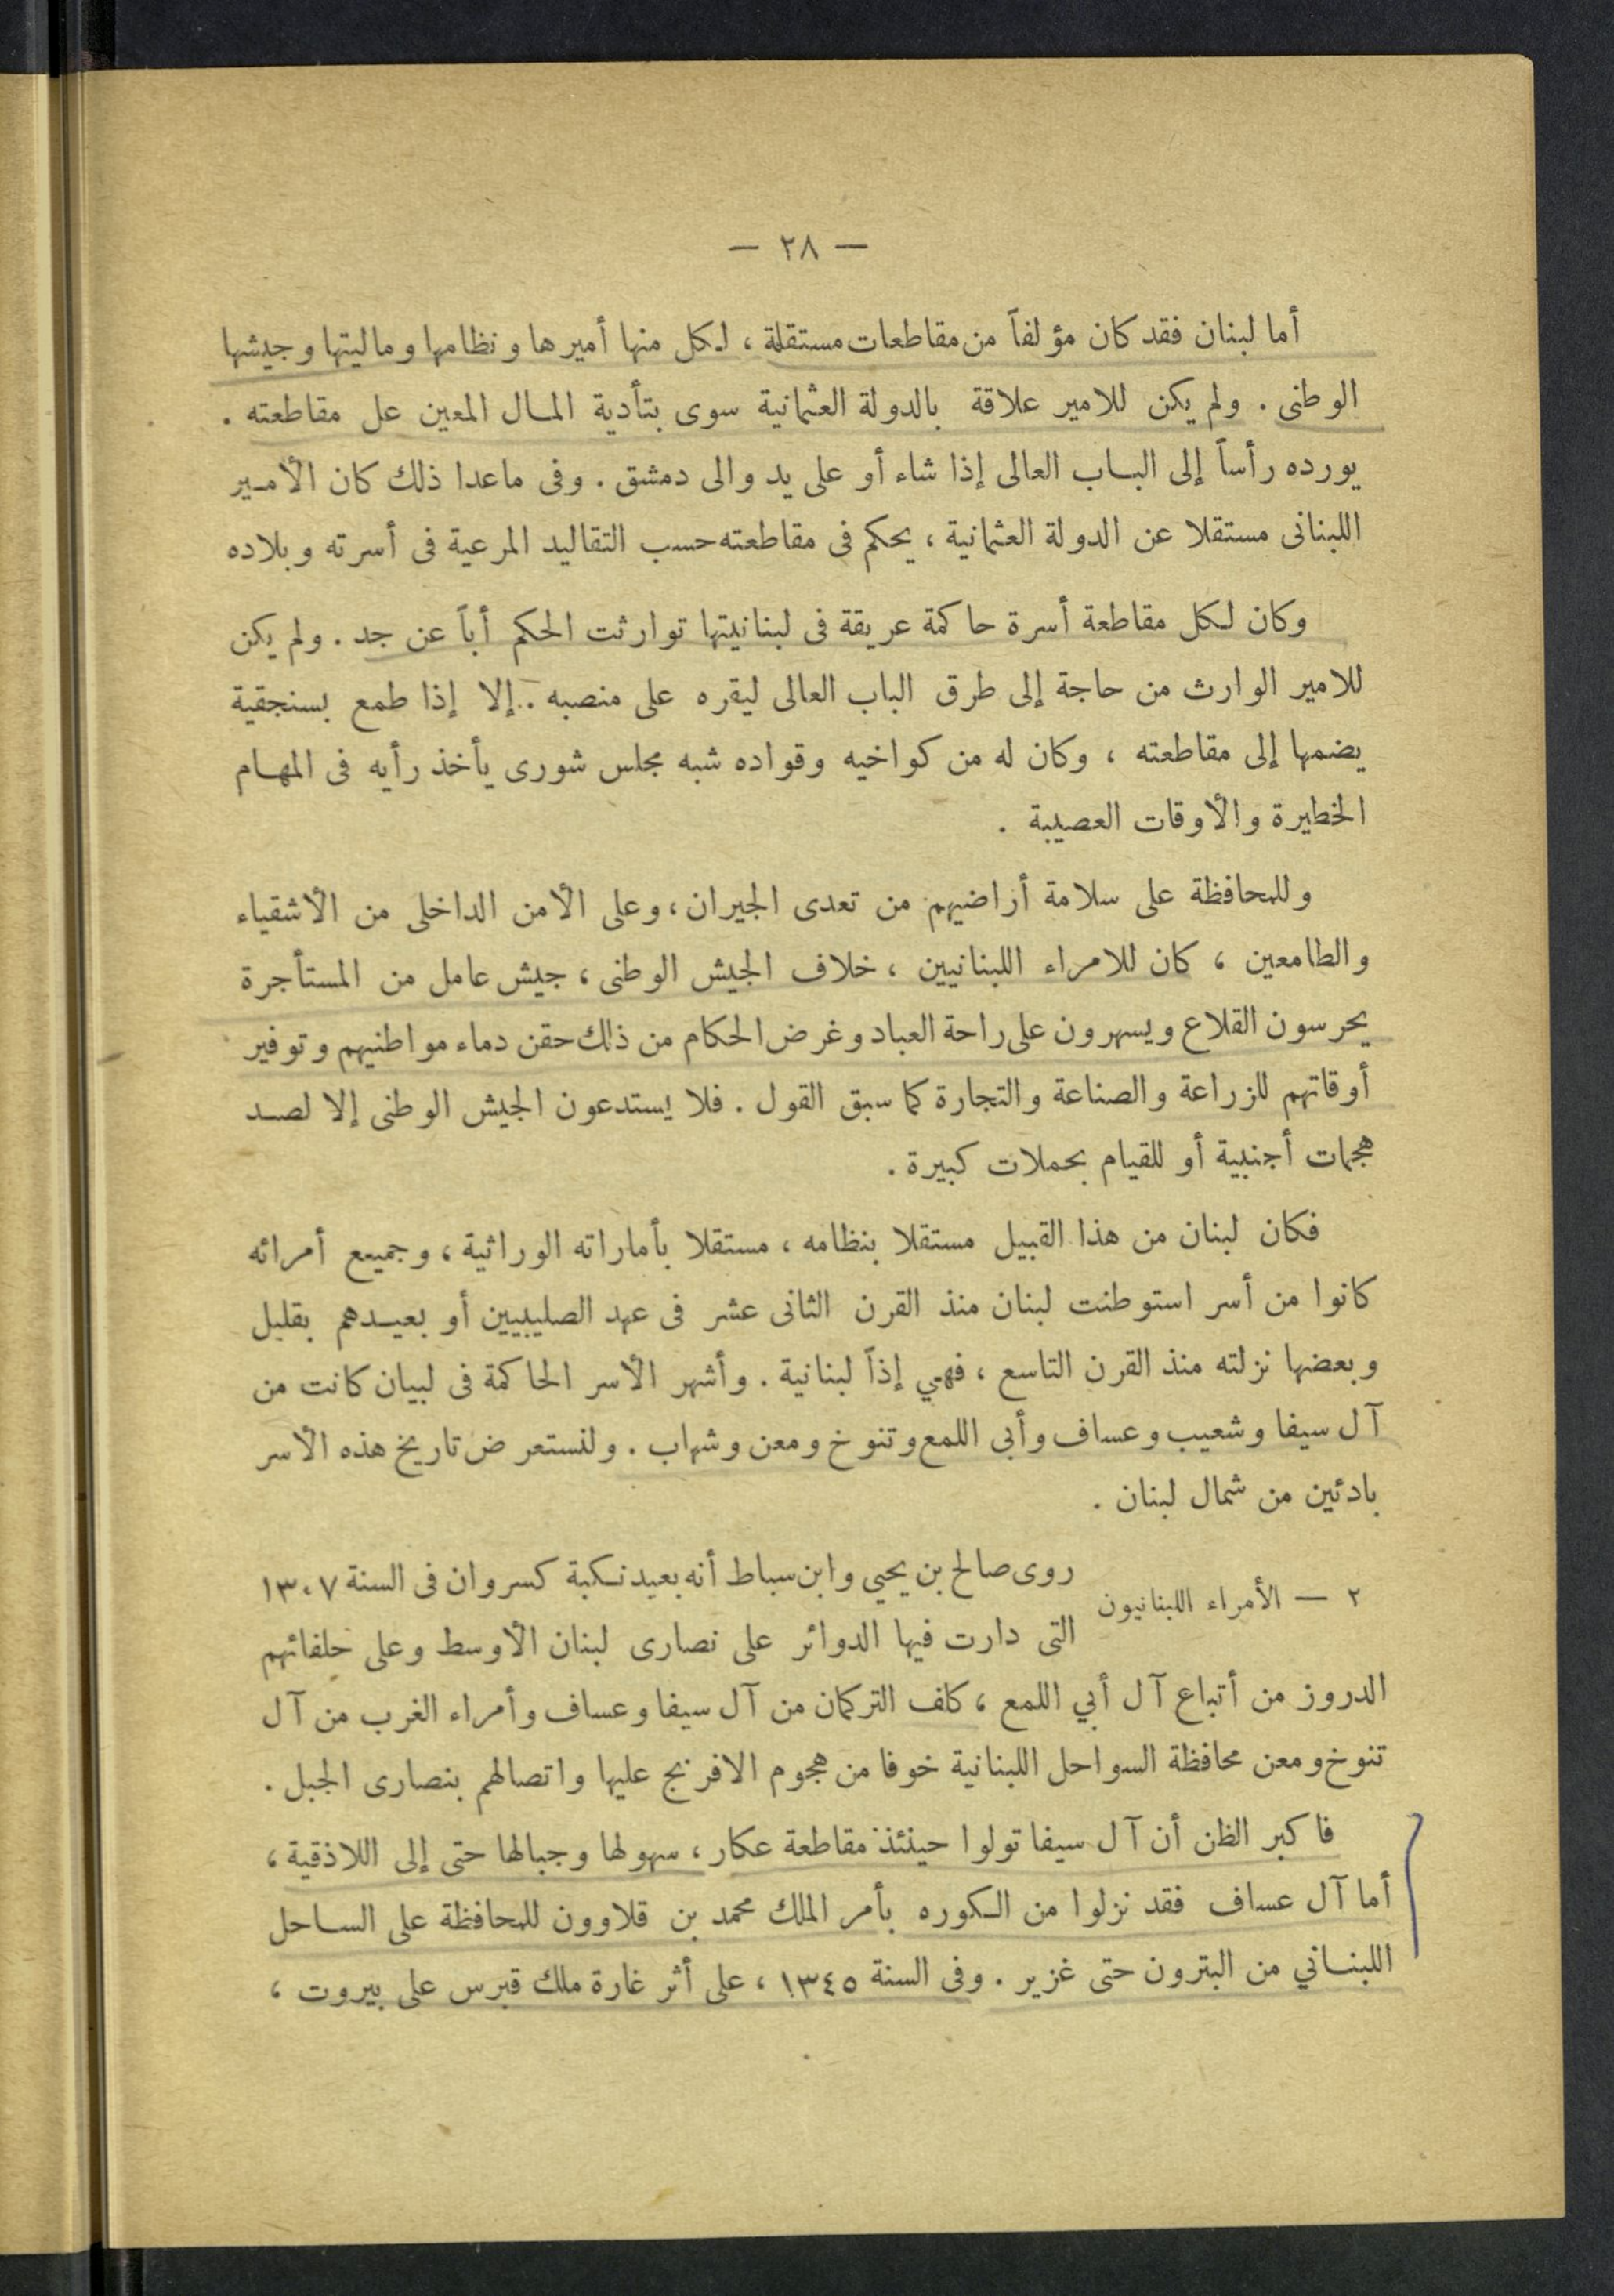 — ٢٨ —
أما لبنان فقد كان مؤلفاً من مقاطعات مستقلة ، لكل منها أميرها ونظامها وماليتها وجيشها
الوطنى . ولم يكن للامير علاقة بالدولة العثمانية سوى بتأدية المال المعين عل مقاطعته .
يورده رأساً إلى الباب العالى إذا شاء أو على يد والى دمشق . وفى ماعدا ذلك كان الأمير
اللبنانى مستقلا عن الدولة العثمانية ، يحكم فى مقاطعته حسب التقاليد المرعية فى أسرته وبلاده
وكان لكل مقاطعة أسرة حاكمة عريقة فى لبنانيتها توارثت الحكم أباً عن جد . ولم يكن
للامير الوارث من حاجة إلى طرق الباب العالى ليقره على منصبه . إلا إذا طمع بسنجقية
يضمها إلى مقاطعته ، وكان له من كواخيه وقواده شبه مجلس شورى يأخذ رأيه فى المهام
الخطيرة والأوقات العصيبة .
وللمحافظة على سلامة أراضيهم من تعدى الجيران ، وعلى الأمن الداخلى من الأشقياء
والطامعين ، كان للامراء اللبنانيين ، خلاف الجيش الوطنى ، جيش عامل من المستأجرة
يحرسون القلاع ويسهرون على راحة العباد وغرض الحكام من ذلك حقن دماء مواطنيهم وتوفير
أوقاتهم للزراعة والصناعة والتجارة كما سبق القول . فلا يستدعون الجيش الوطنى إلا لصد
هجمات أجنبية أو للقيام بحملات كبيرة .
فكان لبنان من هذا القبيل مستقلا بنظامه ، مستقلا بأماراته الوراثية ، وجميع أمرائه
كانوا من أسر استوطنت لبنان منذ القرن الثانى عشر فى عهد الصليبيين أو بعيدهم بقليل
وبعضها نزلته منذ القرن التاسع ، فهي إذاً لبنانية . وأشهر الأسر الحاكمة فى لبيان كانت من
آل سيفا وشعيب وعساف وأبى اللمع وتنوخ ومعن وشهاب . ولنستعرض تاريخ هذه الأسر
بادئين من شمال لبنان .
٢ — الأمراء اللبنانيون
روى صالح بن يحيى وابن سباط أنه بعيد نكبة كسروان فى السنة ١٣٠٧
التى دارت فيها الدوائر على نصارى لبنان الأوسط وعلى حلفائهم
الدروز من أتباع آل أبي اللمع ، كلف التركمان من آل سيفا وعساف وأمراء الغرب من آل
تنوخ ومعن محافظة السواحل اللبنانية خوفا من هجوم الافرنج عليها واتصالهم بنصارى الجبل .
فاكبر الظن أن آل سيفا تولوا حينئذ مقاطعة عكار ، سهولها وجبالها حتى إلى اللاذقية ،
أما آل عساف فقد نزلوا من الكوره بأمر الملك محمد بن قلاوون للمحافظة على الساحل
اللبناني من البترون حتى غزير . وفى السنة ١٣٤٥ ، على أثر غارة ملك قبرس على بيروت ،